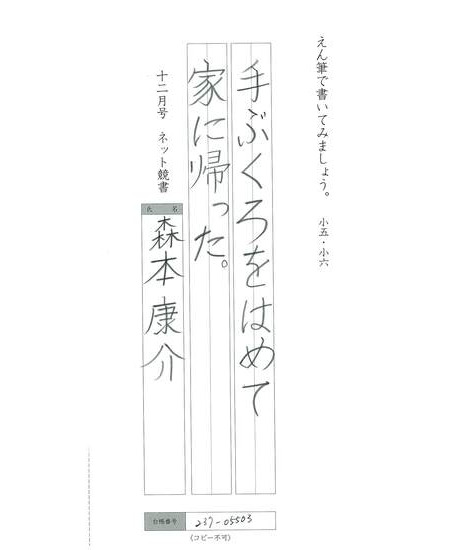 えん筆で書いてみましょう。 小五・小六
手ぶくろをはめて
家に帰った。
十二月号 ネット競書
氏名
森本康介
台帳番号 237-05503
(コピー不可)